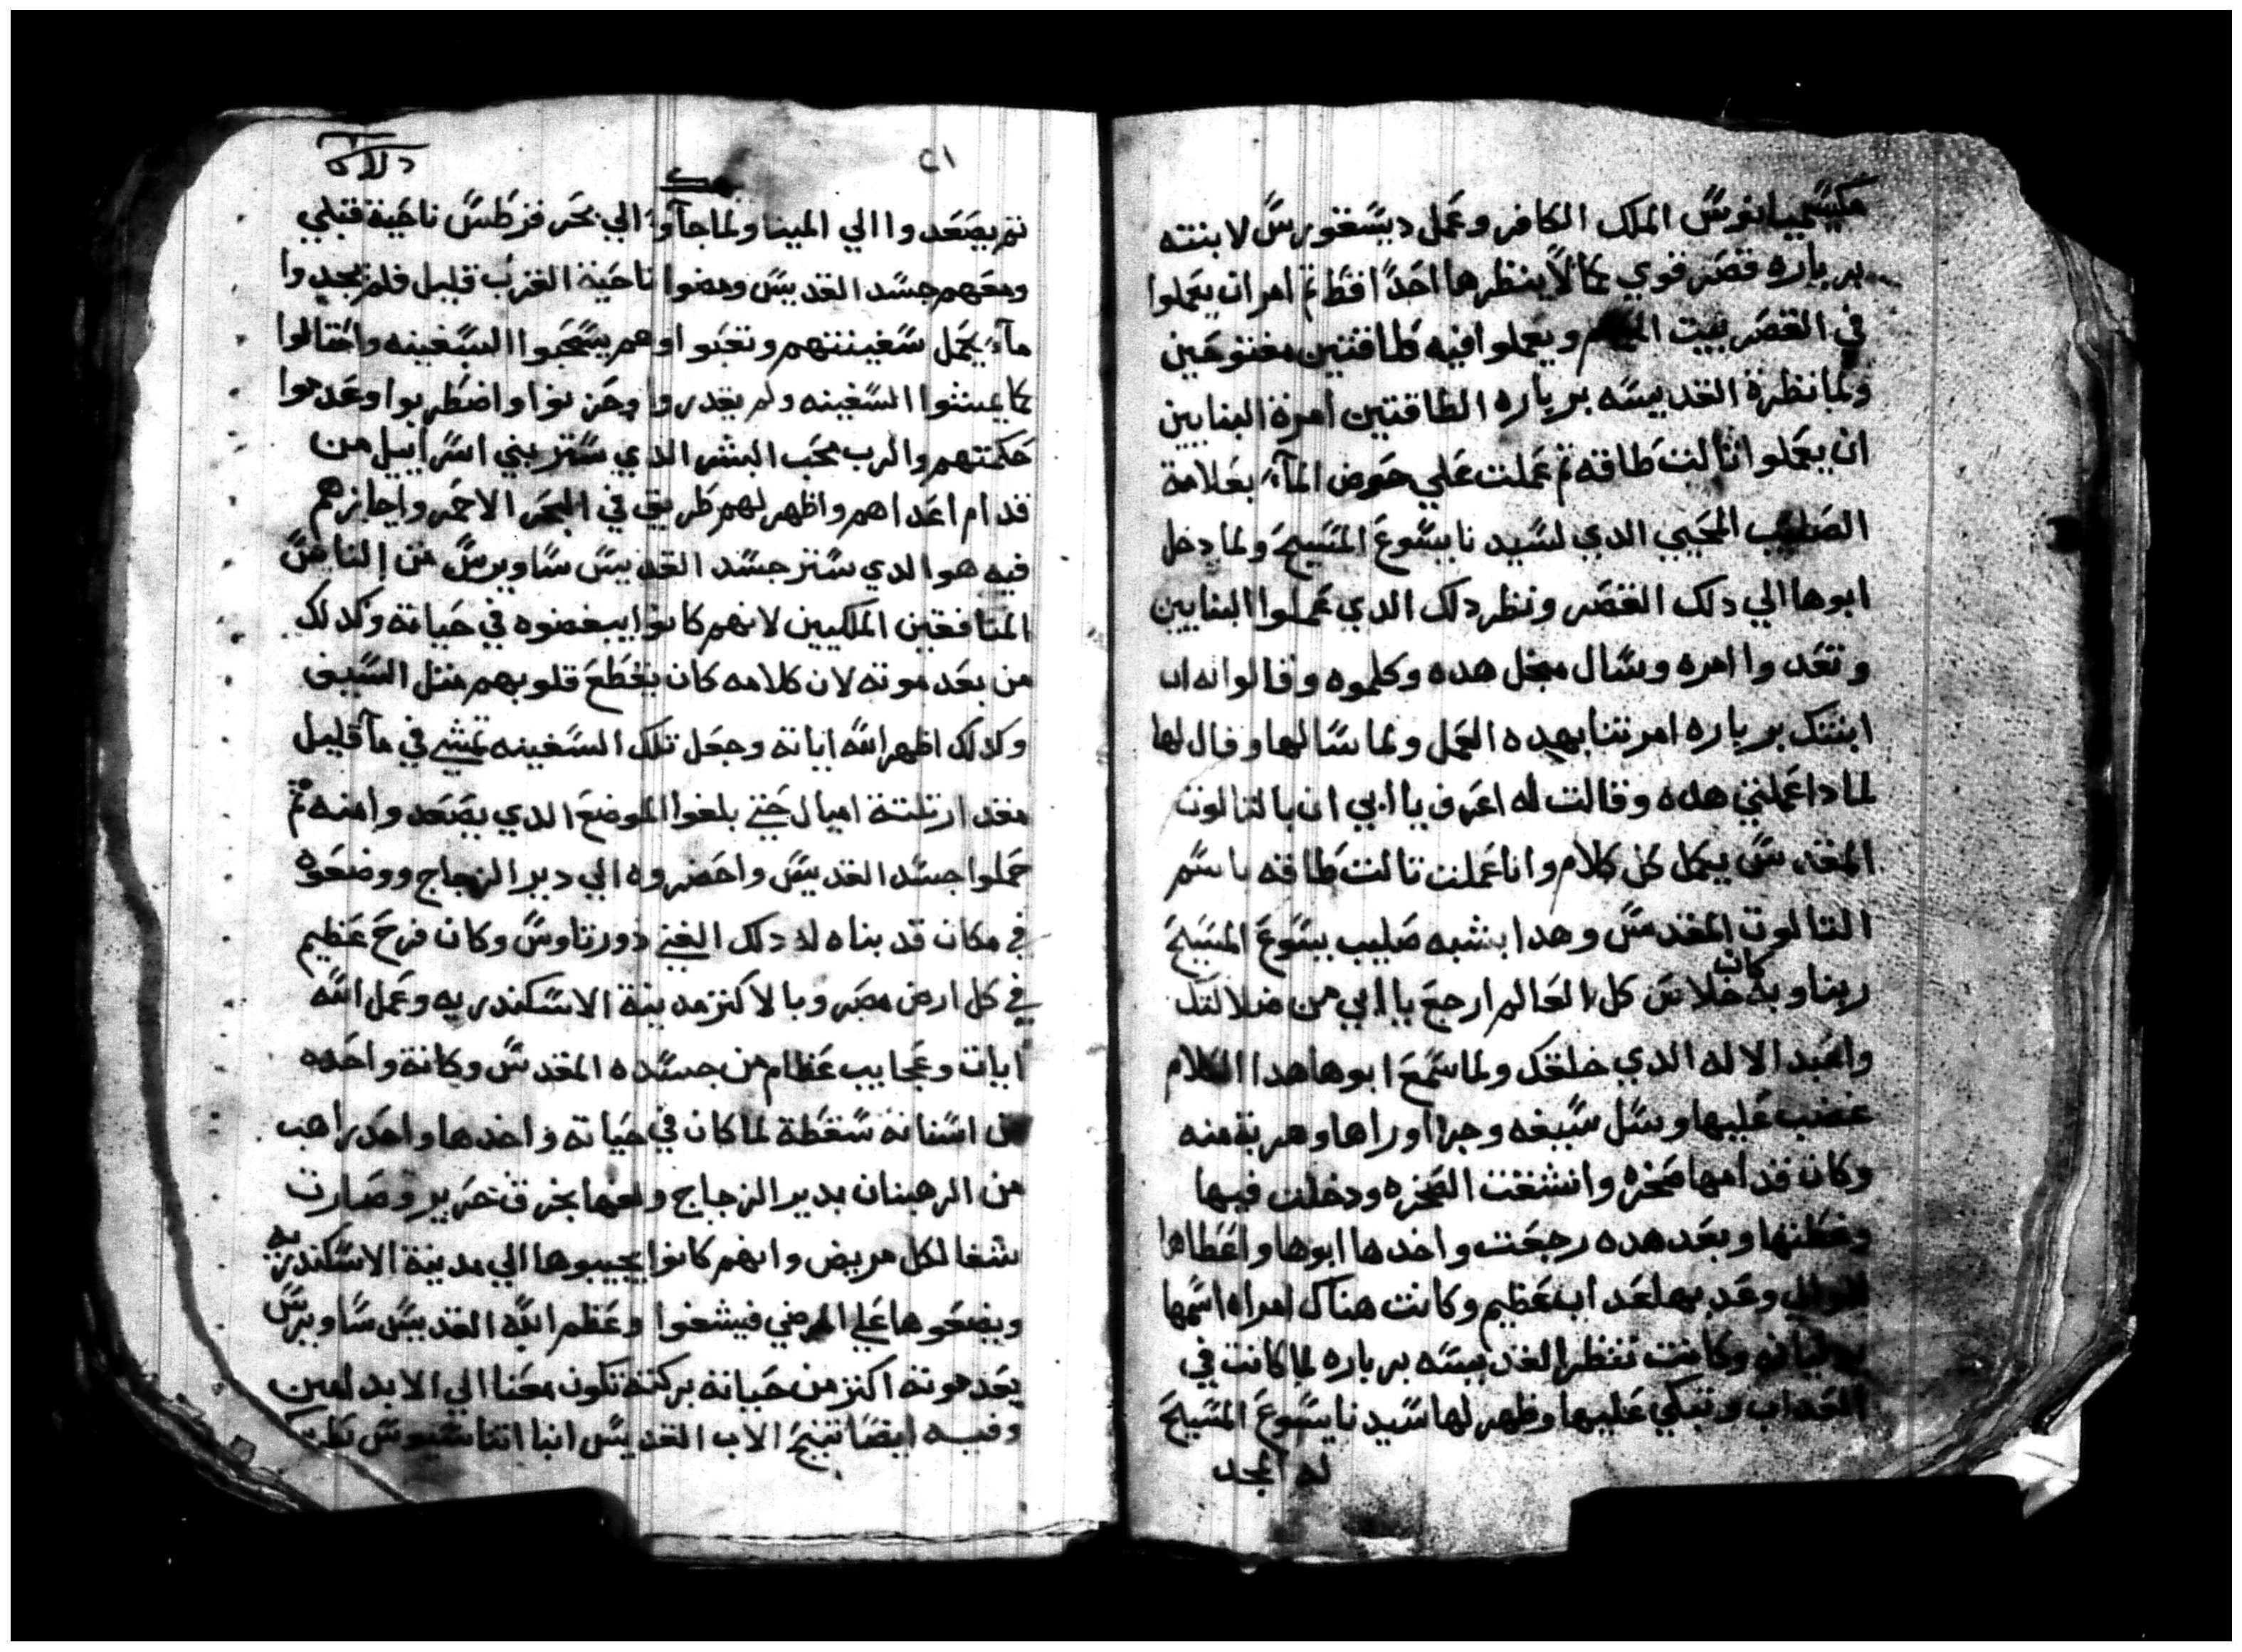 مكسيميانوس الملك الكافر وعمل ديسقورس لابنته
برباره قصر قوي لكالا ينظرها احدا قط تم امر ان يعملوا
في القصر بيت ويعملوا فيه طاقتين مفتوحين
ولما نظرة القديسه برباره الطاقتين امرة البنايين
ان يعملوا تالت طاقه تم عملت علي حوض المآء بعلامة
الصليب المحيي الدي لسيدنا يسوع المسيح ولما دخل
ابوها الي دلك القصر ونظر دلك الدي عملوا البنايين
وتعدوا امره وسال مجل هده وكلموه وقالوا له ان
ابنتك برباره امرتنا بهده العمل ولما سالها وقال لها
لمادا عملتي هده وقالت له اعرف يا ابي ان بالتالوت
المقدس يكمل كل كلام وانا عملت تالت طاقه باسم
التالوت المقدس وهدا بشبه صليب يسوع المسيح
ربنا وبه كان خلاص كل العالم ارجع يا ابي من ضلالتك
واعبد الاله الدي خلقك ولما سمع ابوها هدا الكلام
غضب عليها وسل سيفه وجرا وراها وهربة منه
وكان قدامها صخره وانشقت الصخره ودخلت فيها
وغطتها وبعد هده رجعت واخدها ابوها واعطاها
للوالي وعدبها عداب عظيم وكانت هناك امراه اسمها
يوليانه وكانت تنظر القديسه برباره لما كانت في
العداب وتبكي عليها وظهر لها سيدنا يسوع المسيح
له المجد
٢١
تم يصعدوا الي المينا ولما جآوا الي بحر قرطس ناحية قبلي
ومعهم جسد القديس ومضوا ناحية الغرب قليل فلم يجدوا
مآء يحمل سفينتهم وتعبوا وهم يسحبوا السفينه واحتالوا
لكا يمشوا السفينه ولم يقدروا وحزنوا واضطربوا وعدموا
حكمتهم والرب محب البشر الدي ستر بني اسراييل من
قدام اعداهم واظهر لهم طريق في البحر الاحمر واجازهم
فيه هو الدي ستر جسد القديس ساويرس من الناس
المنافقين الملكيين لانهم كانوا يبغضوه في حياته وكدلك
من بعد موته لان كلامه كان يقطع قلوبهم متل السيف
وكدلك اظهر الله اياته وجعل تلك السفينه تمشي في مآ قليل
مقدار تلتة اميال حتي بلغوا الموضع الدي يصعدوا منه تم
حملوا جسد القديس واحضروه الي دير الزجاج ووضعوه
في مكان قد بناه له دلك الغني دورتاوس وكان فرح عظيم
في كل ارض مصر وبالاكتر مدينة الاسكندريه وعمل الله
ايات وعجايب عظام من جسده المقدس وكانة واحده
من اسنانه سقطة لما كان في حياته واخدها واحد راهب
من الرهبنان بدير الزجاج ولفها بخرق حرير وصارت
شفا لكل مريض وانهم كانوا يجيبوها الي مدينة الاسكندريه
ويضعوها علي المرضي فيشفوا وعظم الله القديس ساويرس
بعد موته اكتر من حياته بركته تكون معنا الي الابد امين
وفيه ايضا تنيح الاب القديس انبا اتناسيوس بطرك